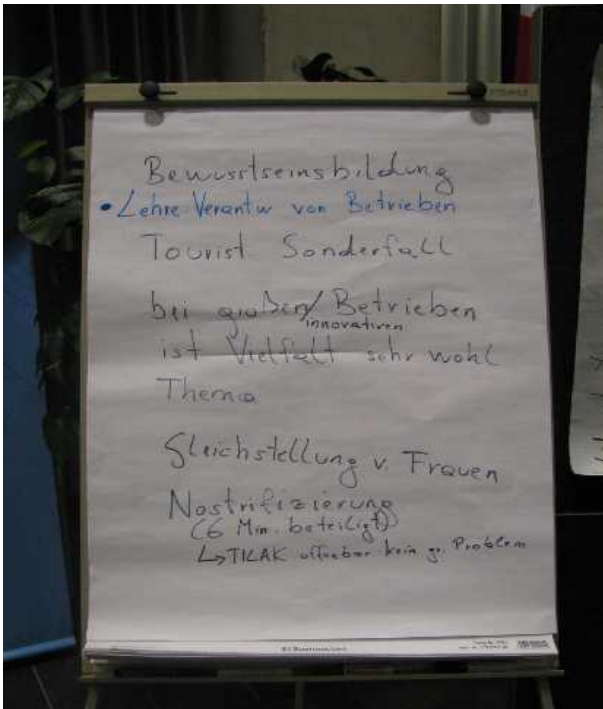 Bewusstseinsbildung
• Lehre Verantw von Betrieben
Tourist Sonderfall
bei großen/ Betrieben
innovativen
ist Vielfalt sehr wohl
Thema
Gleichstellung v. Frauen
Nostrifizierung
(6 Min. beteiligt)
↳ TILAK offenbar kein gr. Problem